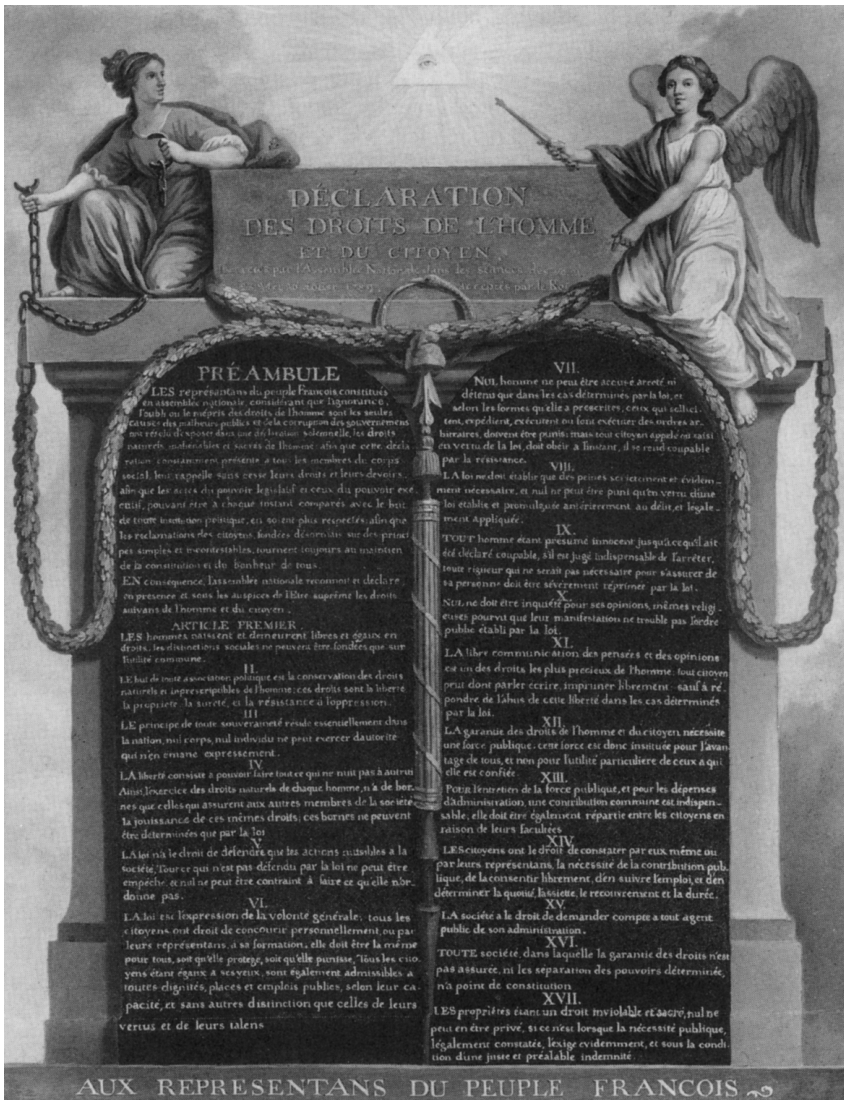 DÉCLARATION
DES DROITS DE L'HOMME
ET DU CITOYEN,
PRÉAMBULE
LES représentans du peuple François constitués
en assemblée nationale, considérant que l'ignorance,
l'oubli ou le mépris des droits de l'homme sont les seules
causes des malheurs publics et de la corruption des gouvernemens
ont résolu d'exposer dans une déclaration solemnelle, les droits
naturels, inaliénables et sacrés de l'homme; afin que cette décla
ration, constamment présente a tous les membres du corps
social, leur rappelle sans cesse leurs droits et leurs devoirs,
afin que les actes du pouvoir législatif et ceux du pouvoir exé
cutif, pouvant être à chaque instant comparés avec le but
de toute institution politique, en soient plus respectés; afin que
les reclamations des citoyens, fondées désormais sur des princi
pes simples et incontestables, tournent toujours au maintien
de la constitution et du bonheur de tous.
EN conséquence, l'assemblée nationale reconnoit et déclare,
en présence et sous les auspices de l'Etre suprême les droits
suivans de l'homme et du citoyen.
ARTICLE PREMIER.
LES hommes naissent et demeurent libres et égaux en
droits, les distinctions sociales ne peuvent être fondées que sur
l'utilité commune.
II.
LE but de toute association politique est la conservation des droits
naturels et inprescriptibles de l'homme; ces droits sont la liberté,
la proprieté, la sureté, et la résistance à l'oppression.
III
LE principe de toute souveraineté réside essentiellement dans
la nation, nul corps, nul individu ne peut exercer d'autorité
qui n'en emane expressement.
IV.
LA liberté consiste a pouvoir faire tout ce qui ne nuit pas à autrui
Ainsi, l'exercice des droits naturels de chaque homme, n'a de bor
nes que celles qui assurent aux autres membres de la société
la jouissance de ces mêmes droits; ces bornes ne peuvent
être déterminées que par la loi
V.
LA loi n'a le droit de défendre que les actions nuisibles a la
société. Tout ce qui n'est pas défendu par la loi ne peut être
empêché, et nul ne peut être contraint à faire ce qu'elle n'or
donne pas.
VI.
LA loi est l'expression de la volonté générale; tous les
citoyens ont droit de concourir personnellement, ou par
leurs représentans, à sa formation; elle doit être la même
pour tous, soit qu'elle protege, soit qu'elle punisse, Tous les cito
yens étant égaux a ses yeux, sont également admissibles à
toutes dignités, places et emplois publics, selon leur ca
pacité, et sans autres distinction que celles de leurs
vertus et de leurs talens
VII.
NUL homme ne peut être accusé, arreté ni
détenu que dans les cas déterminés par la loi, et
selon les formes qu'elle a prescrites, ceux qui sollici
tent, expédient, exécutent ou font exécuter des ordres ar
bitraires, doivent être punis; mais tout citoyen appelé ou saisi
en vertu de la loi, doit obéir a l'instant, il se rend coupable
par la résistance.
VIII.
LA loi ne doit établir que des peines strictement et évidem
ment nécessaire, et nul ne peut être puni qu'en vertu d'une
loi établie et promulguée antérierement au délit, et légale
ment appliquée.
IX.
TOUT homme étant présumé innocent jusqu'a ce qu'il ait
été déclaré coupable, s'il est jugé indispensable de l'arrêter,
toute rigueur qui ne serait pas nécessaire pour s'assurer de
sa personne doit être sévèrement réprimée par la loi.
X.
NUL ne doit être inquiété pour ses opinions, mêmes religi
euses pourvu que leur manifestation ne trouble pas l'ordre
public établi par la loi.
XI.
LA libre communication des pensées et des opinions
est un des droits les plus precieux de l'homme; tout citoyen
peut dont parler écrire, imprimer librement: sauf à ré
pondre de l'abus de cette liberté dans les cas déterminés
par la loi.
XII.
LA garantie des droits de l'homme et du citoyen nécessite
une force publique: cette force est donc instituée pour l'avan
tage de tous, et non pour l'utilité particuliere de ceux a qui
elle est confiée.
XIII.
POUR l'entretien de la force publique, et pour les dépenses
d'administration, une contribution commune est indispen
sable, elle doit être également répartie entre les citoyens en
raison de leurs facultées
XIV.
LES citoyens ont le droit de constater par eux même ou
par leurs représentans, la nécessité de la contribution pub
lique, de la consentir librement, d'en suivre l'emploi, et d'en
déterminer la quotité, l'assiette, le recouvrement et la durée.
XV.
LA société a le droit de demander compte a tout agent
public de son administration.
XVI.
TOUTE société, dans laquelle la garantie des droits n'est
pas assurée, ni les séparation des pouvoirs déterminée,
n'a point de constitution
XVII.
LES propriétés étant un droit inviolable et sacré, nul ne
peut en être privé, si ce n'est lorsque la nécessité publique,
légalement constatée, l'exige evidemment, et sous la condi
tion d'une juste et préalable indemnité.
AUX REPRESENTANS DU PEUPLE FRANCOIS